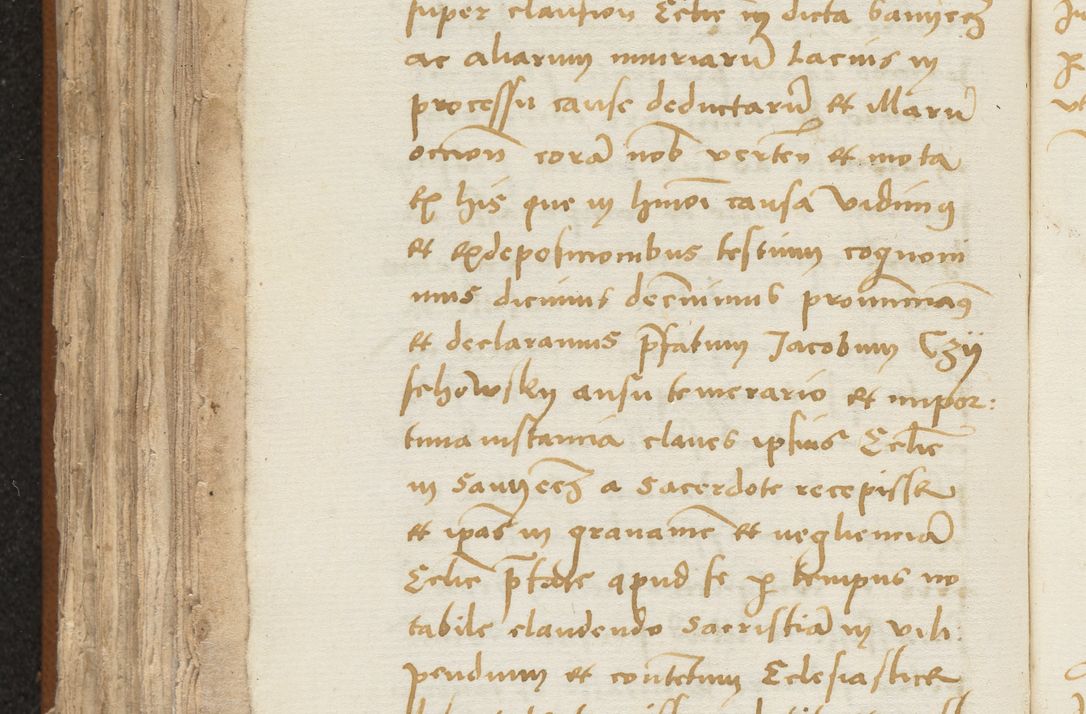 super claustron Eclie in dicta Samyecz
ac aliarum iniuriarũ Lacius in
processu cause deductarũ et illarũ
occion corã nob verten et mota
Ex his que in hmoi causa vidimus
et ex deposicionibus testium cognoui
mus dicimus decnimus pronunciaus
et declaramus pfatum Jacobum Czy
schowsky ausu temerario et impor:
tuna instancia claues ipsius Eclie
in Samyecz a Sacerdote recepisse
et ipas in grauamē et neglienciã
Eclie pfate apud se p tempus no
tabile claudendo Sacristiã in vili
pendium et contētum Eclesiastice